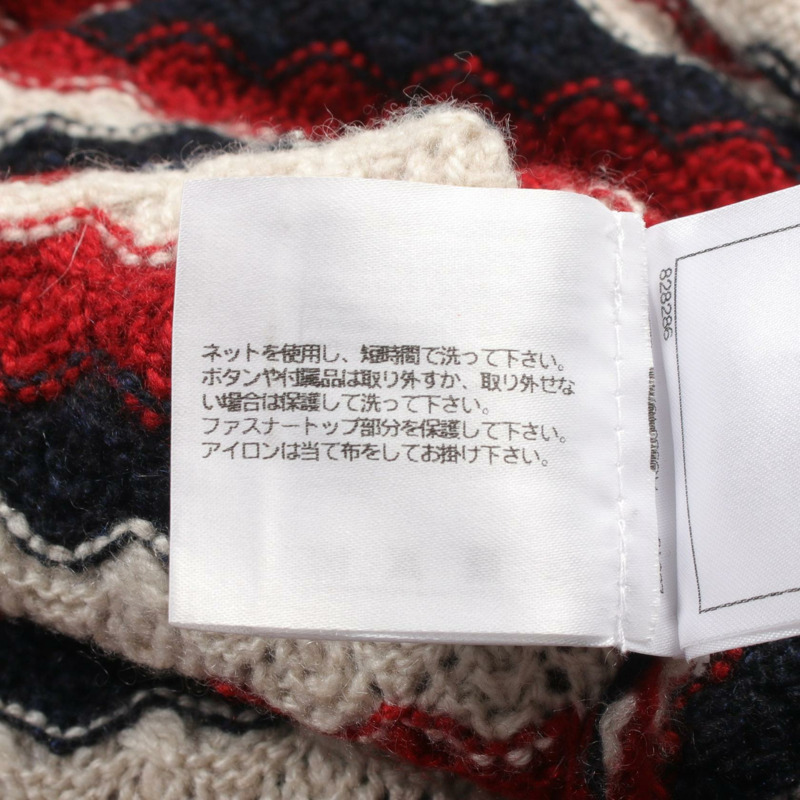 ネットを使用し、短時間で洗って下さい。
ボタンや付属品は取り外すか、取り外せな
い場合は保護して洗って下さい。
ファスナートップ部分を保護して下さい。
アイロンは当て布をしてお掛け下さい。
828286